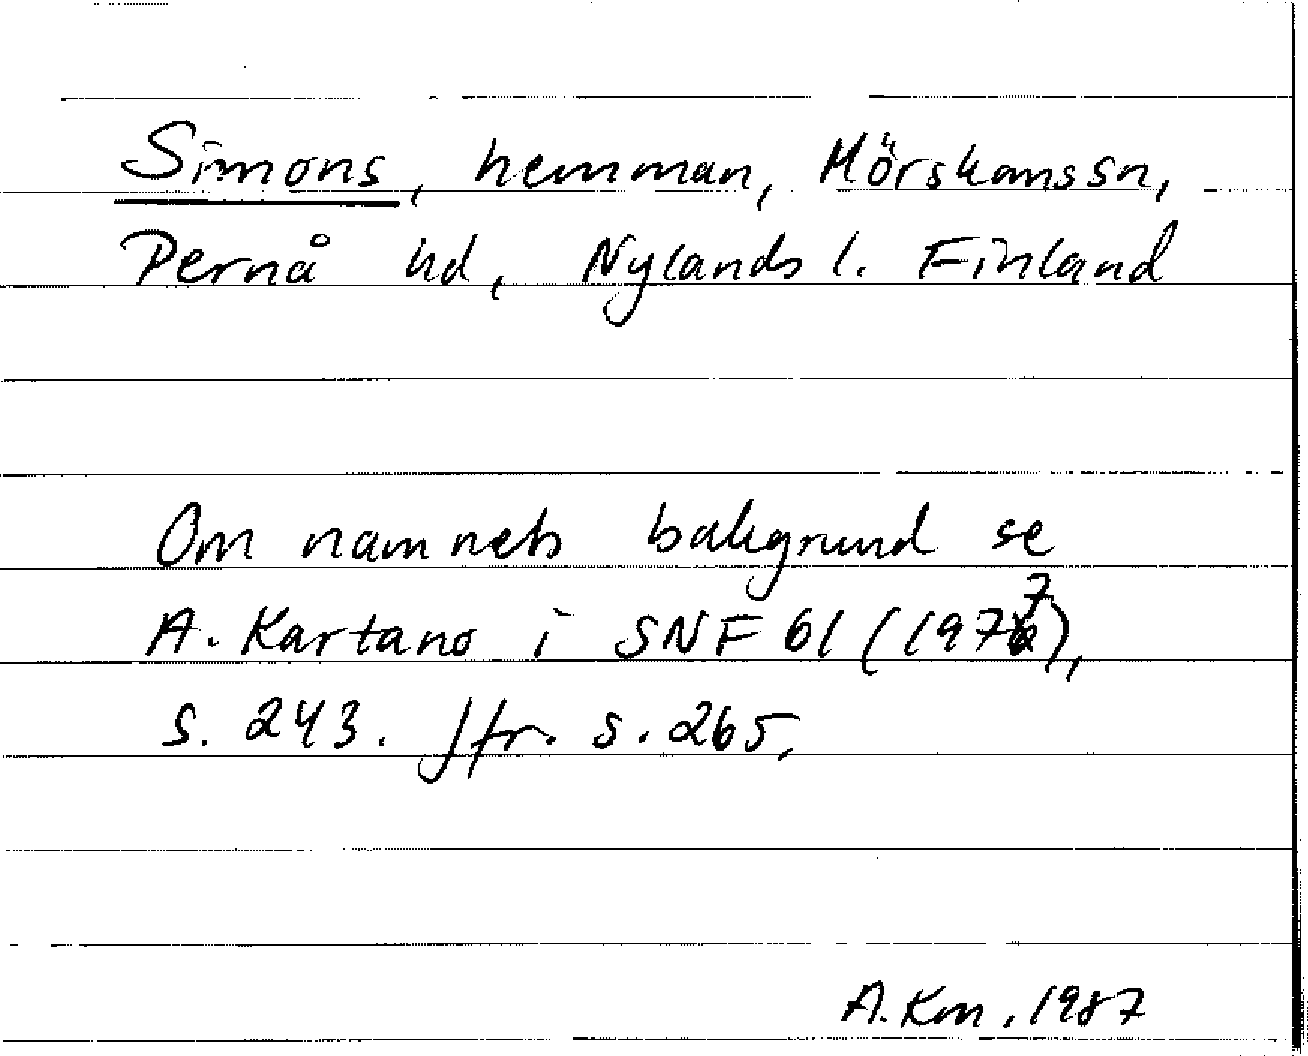 Simons, hemman, Mörskoms sn,
Pernå hd, Nylands l. Finland
Om namnets bakgrund se
A. Kartano i SNF 61 (1977),
s. 243. Jfr. s. 265.
A. Km, 1987